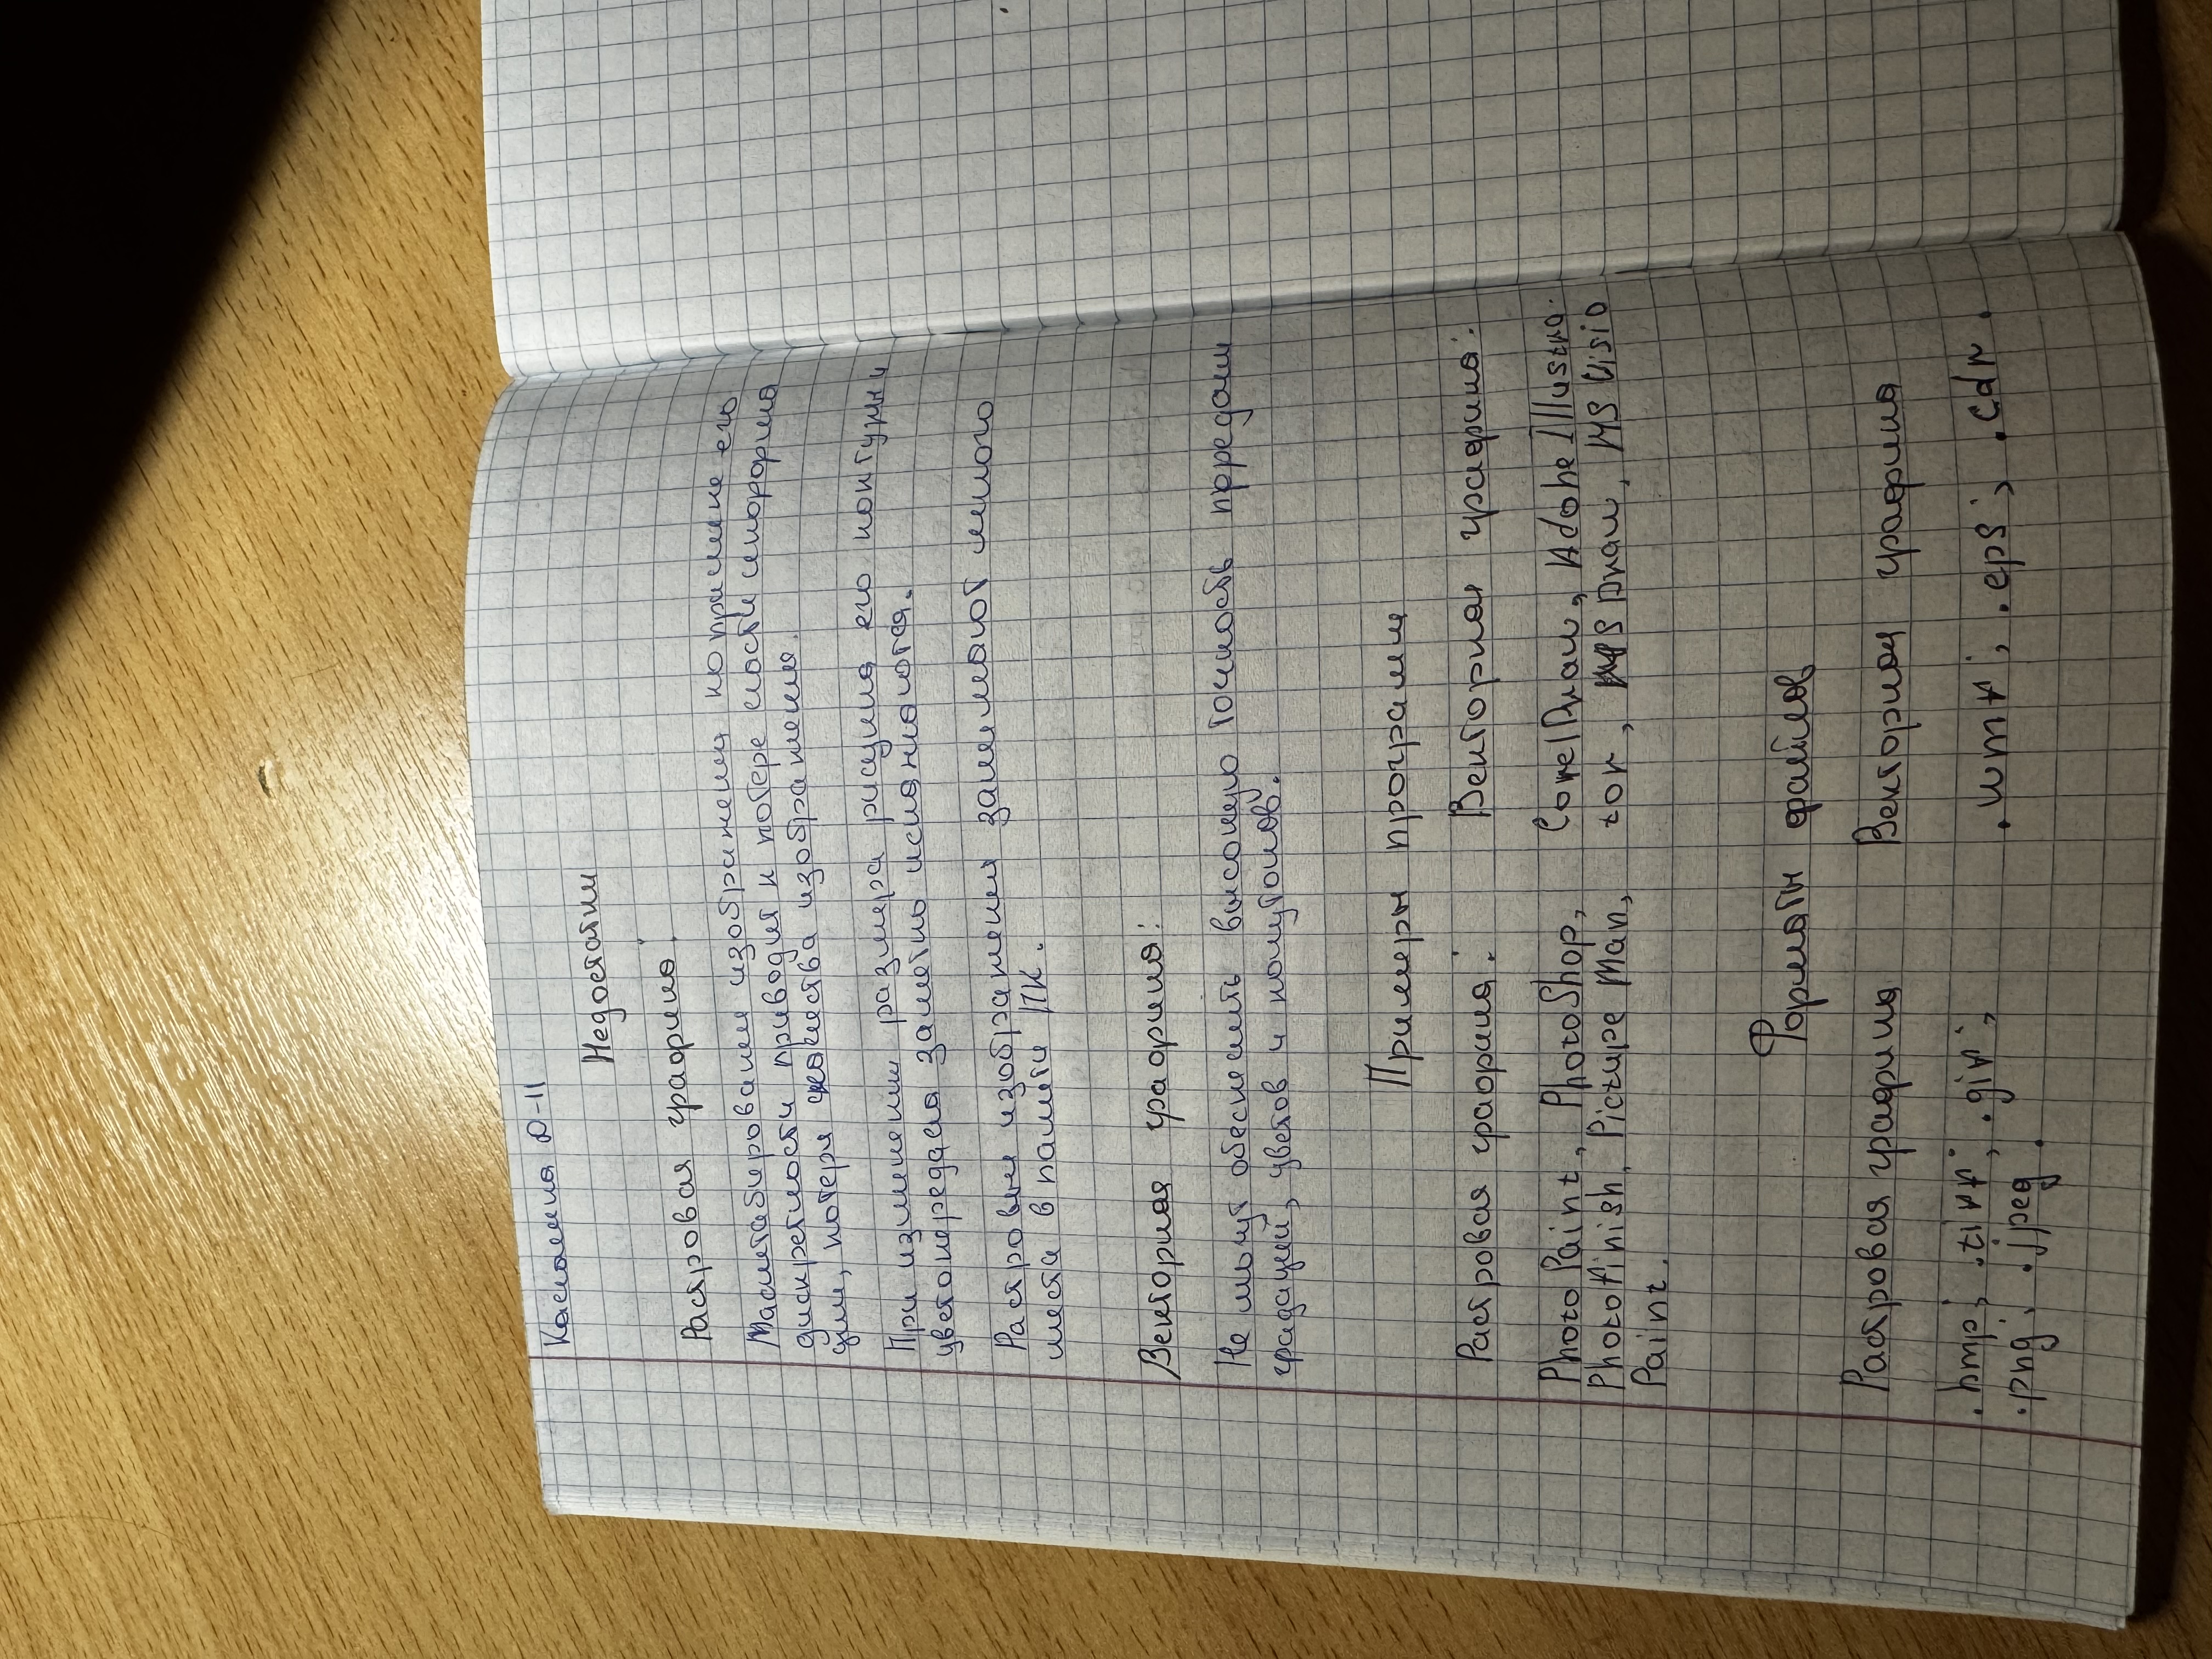 Д-11
Недостатки
Растровая графика:
Масштабирование изображения, например его
дискретности приводит к потере части информа
ции, потеря качества изображения.
При изменении размера рисунка его контуры и
цветопередача заметно искажаются.
Растровые изображения занимают много
места в памяти ПК.
Векторная графика:
Не могут обеспечить высокую точность передачи
градаций, цветов и полутонов.
Примеры программ
Растровая графика: Векторная графика:
PhotoPaint, PhotoShop, CorelDraw, Adobe Illustra-
Photofinish, Picture Man, tor, MS Draw, MS Visio
Paint.
Форматы файлов
Растровая графика Векторная графика
.bmp; .tiff; .gif; .wmf; .eps; .cdr.
.png, .jpeg.